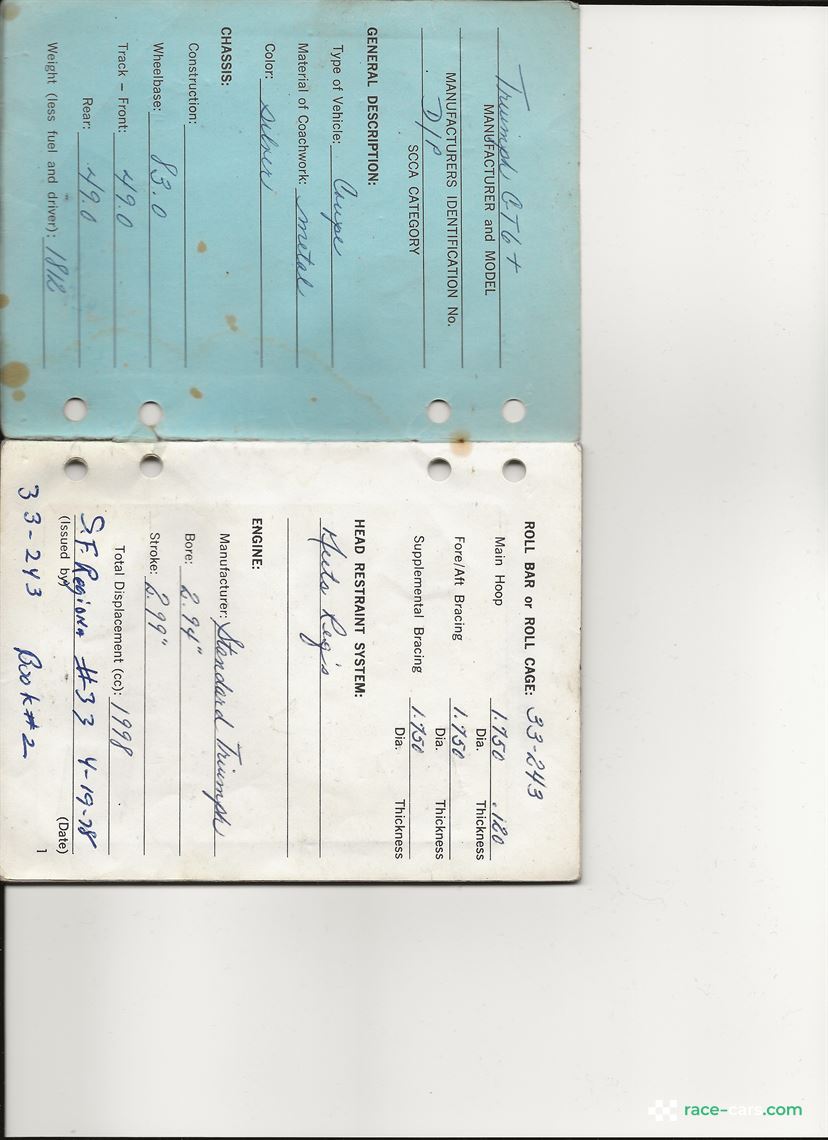 Triumph GT6+
MANUFACTURER and MODEL
MANUFACTURERS IDENTIFICATION No.
D/P
SCCA CATEGORY
GENERAL DESCRIPTION:
Type of Vehicle: Coupe
Material of Coachwork: metal
Color: silver
CHASSIS:
Construction:
Wheelbase: 83.0
Track – Front: 49.0
Rear: 49.0
Weight (less fuel and driver): 1812
ROLL BAR or ROLL CAGE: 33-243
Main Hoop 1.750 .120
Dia. Thickness
Fore/Aft Bracing 1.750
Dia. Thickness
Supplemental Bracing 1.750
Dia. Thickness
HEAD RESTRAINT SYSTEM:
Meets Reg's
ENGINE:
Manufacturer: Standard Triumph
Bore: 2.94"
Stroke: 2.99"
Total Displacement (cc): 1998
S.F. Region #33 4-19-78
(Issued by) (Date)
33-243 Book #2
1
race-cars.com